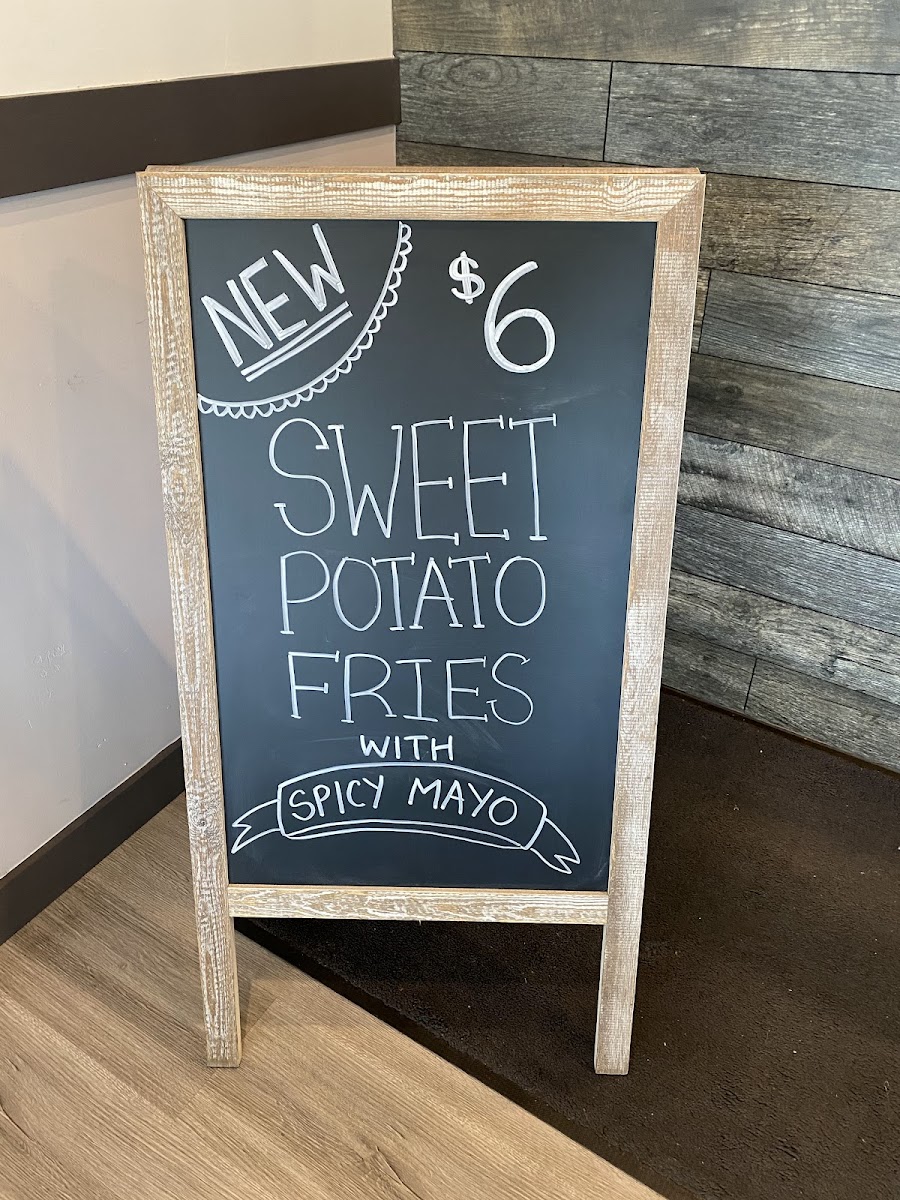 NEW
$6
SWEET
POTATO
FRIES
WITH
SPICY MAYO